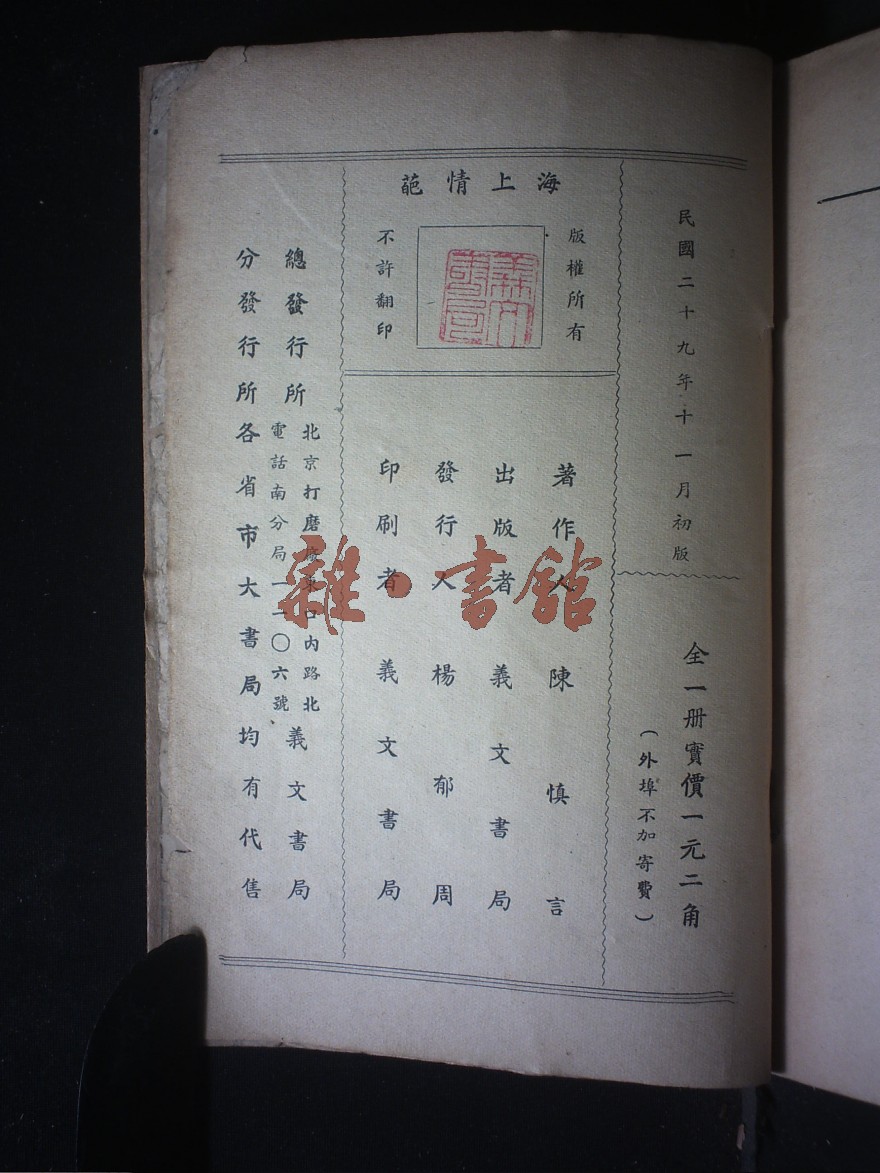 民國二十九年十一月初版
全一册實價一元二角
（外埠不加寄費）
海上情葩
版權所有
不許翻印
著作人 陳慎言
出版者 義文書局
發行人 楊郁周
印刷者 義文書局
總發行所
北京打磨廠東口内路北
電話南分局一一〇六號
義文書局
分發行所各省市大書局均有代售
雜·書館